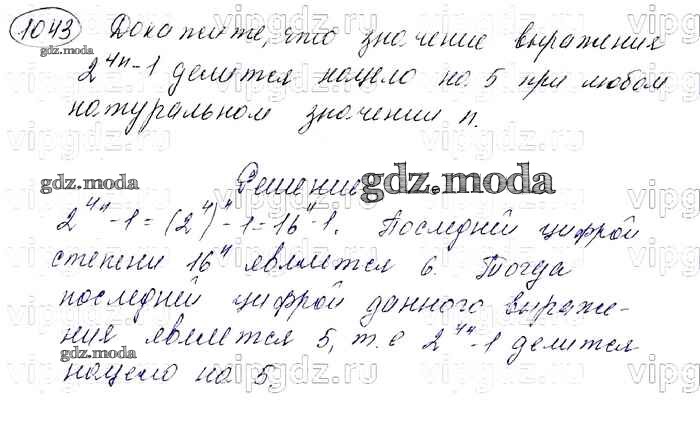 1043 Докажите, что значение выражения
2^{4n}-1 делится нацело на 5 при любом
натуральном значении n.
Решение
2^{4n}-1=(2^4)^n-1=16^n-1. Последней цифрой
степени 16^n является 6. Тогда
последней цифрой данного выраже-
ния является 5, т.е 2^{4n}-1 делится
нацело на 5.
gdz.moda
gdz.moda
gdz.moda
gdz.moda
vipgdz.ru